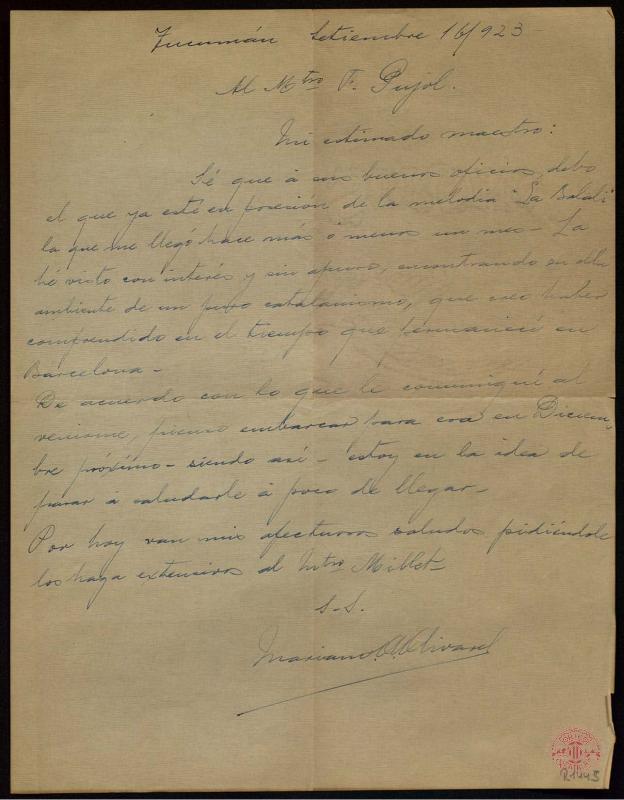 Tucumán Setiembre 16/923
Al Mtro F. Pujol.
Mi estimado maestro:
Sé que á sus buenos oficios, debo
el que ya esté en posesión de la melodia "La
la que me llegó hace más ó menos un mes - La
hé visto con interés y sin apuro, encontrando en ella
ambiente de un puro catalanismo, que creo haber
comprendido en el tiempo que permanecí en
Barcelona -
De acuerdo con lo que le comuniqué al
venirme, pienso embarcar para esa en Diciem-
bre próximo - siendo así - estoy en la idea de
pasar á saludarle á poco de llegar -
Por hoy van mis afectuosos saludos, pidiéndole
los haga extensivos al Mtro Millet -
S.S.
Mariano
R1445